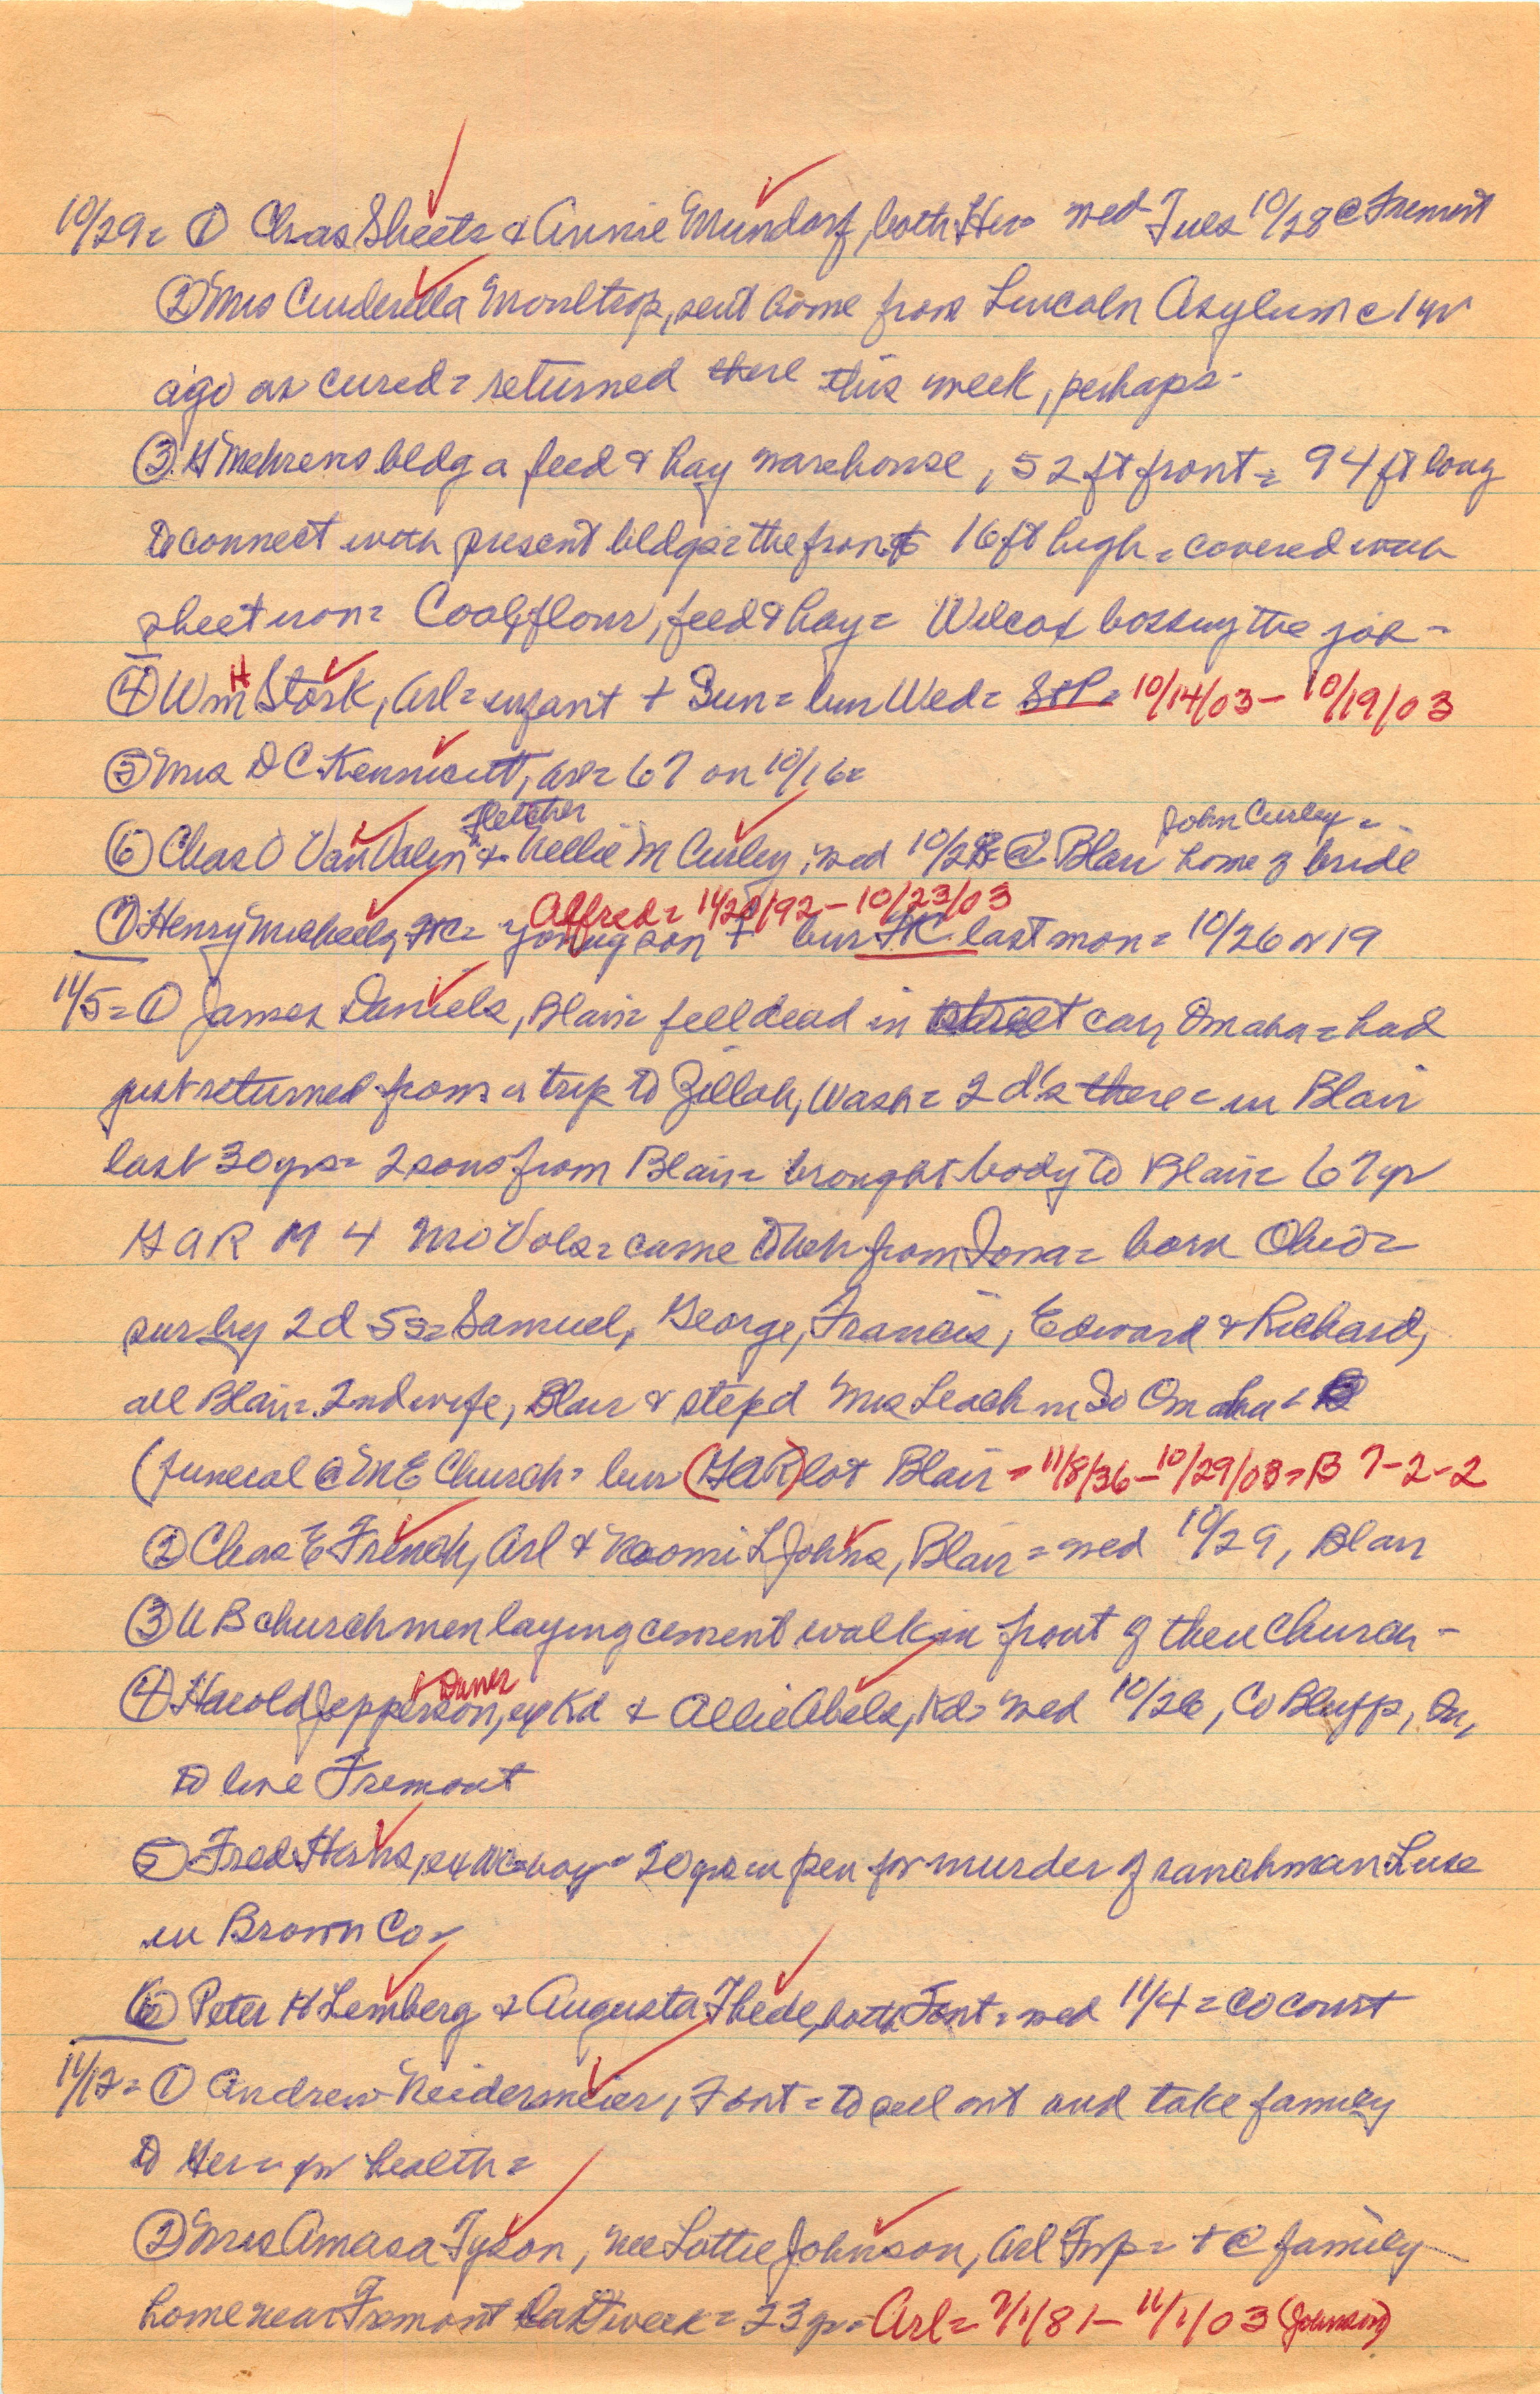 10/29= ① Chas Sheets & Annie Mundorf, both Her= med Tues 10/28 @ Fremont
② Mrs Cinderella Moultrop, sent home from Lincoln Asylum c 1 yr
ago as cured= returned there this week, perhaps-
③ H Mehrens bldg a feed & hay warehouse, 52 ft front= 94 ft long
to connect with present bldgs= the front 16 ft high= covered with
sheet iron= Coal, flour, feed & hay= Wilcox bossing the job=
④ Wm H Stork, Arl= infant + Sun= bur Wed= S&P= 10/14/03- 10/19/03
⑤ Mrs D C Kennicutt, Arl= 67 on 10/16=
Fletcher John Curley=
⑥ Chas O Van Valin & Nellie M Curley, med 10/28 @ Blair home of bride
Alfred= 11/20/92- 10/23/03
⑦ Henry Micheely, FtC= young son + bur FtC last mon= 10/26 or 19
11/5= ① James Daniels, Blair= fell dead in street car, Omaha= had
just returned from a trip to Zillah, Wash= 2 d's there= in Blair
last 30 yrs= 2 sons from Blair= brought body to Blair= 67 yr
GAR M 4 Mo Vols= came to Neb from Iowa= born Ohio=
sur by 2 d 5 s= Samuel, George, Francis, Edward & Richard,
all Blair= 2nd wife, Blair & step d Mrs Leach in So Omaha=
(funeral @ ME Church= bur (GAR) lot Blair= 11/8/36- 10/29/03= B 7-2-2
② Chas E French, Arl & Naomi L Johns, Blair= med 10/29, Blair
③ U B church men laying cement walk in front of their church-
④ Harold Jepperson, ex Kd & Allie Abels, Kd= med 10/26, Co Bluffs, Ia,
to live Fremont
⑤ Fred Hans, boy= 20 yrs in pen for murder of ranchman Luse
in Brown Co=
⑥ Peter H Lemberg & Augusta Thede, both Font= med 11/4= co court
11/12= ① Andrew Neidermeier, Font= to sell out and take family
to Ger= for health=
② Mrs Amasa Tyson, nee Lottie Johnson, Arl Twp= + @ family
home near Fremont last week= 23 yr= Arl= 7/1/81- 11/1/03 (Johnson)